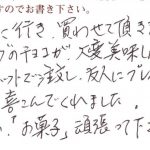 すのでお書き下さい。
に行き、買わせて頂き
ブのチョコが、大変美味し
ットで注文し、友人にプレ
喜こんでくれました。
い「お菓子」頑張って下さ